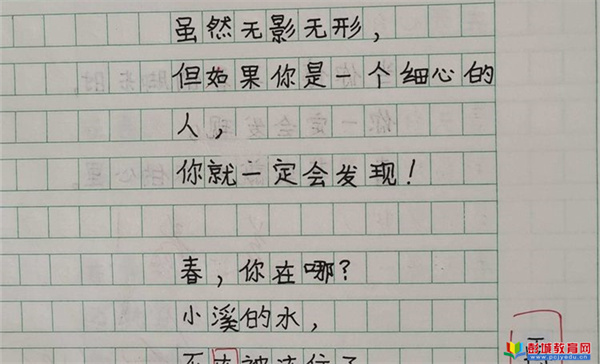 虽然无影无形，
但如果你是一个细心的
人，
你就一定会发现！
春，你在哪？
小溪的水，
不再被冻住了
彭城教育网
www.pcjyedu.cn